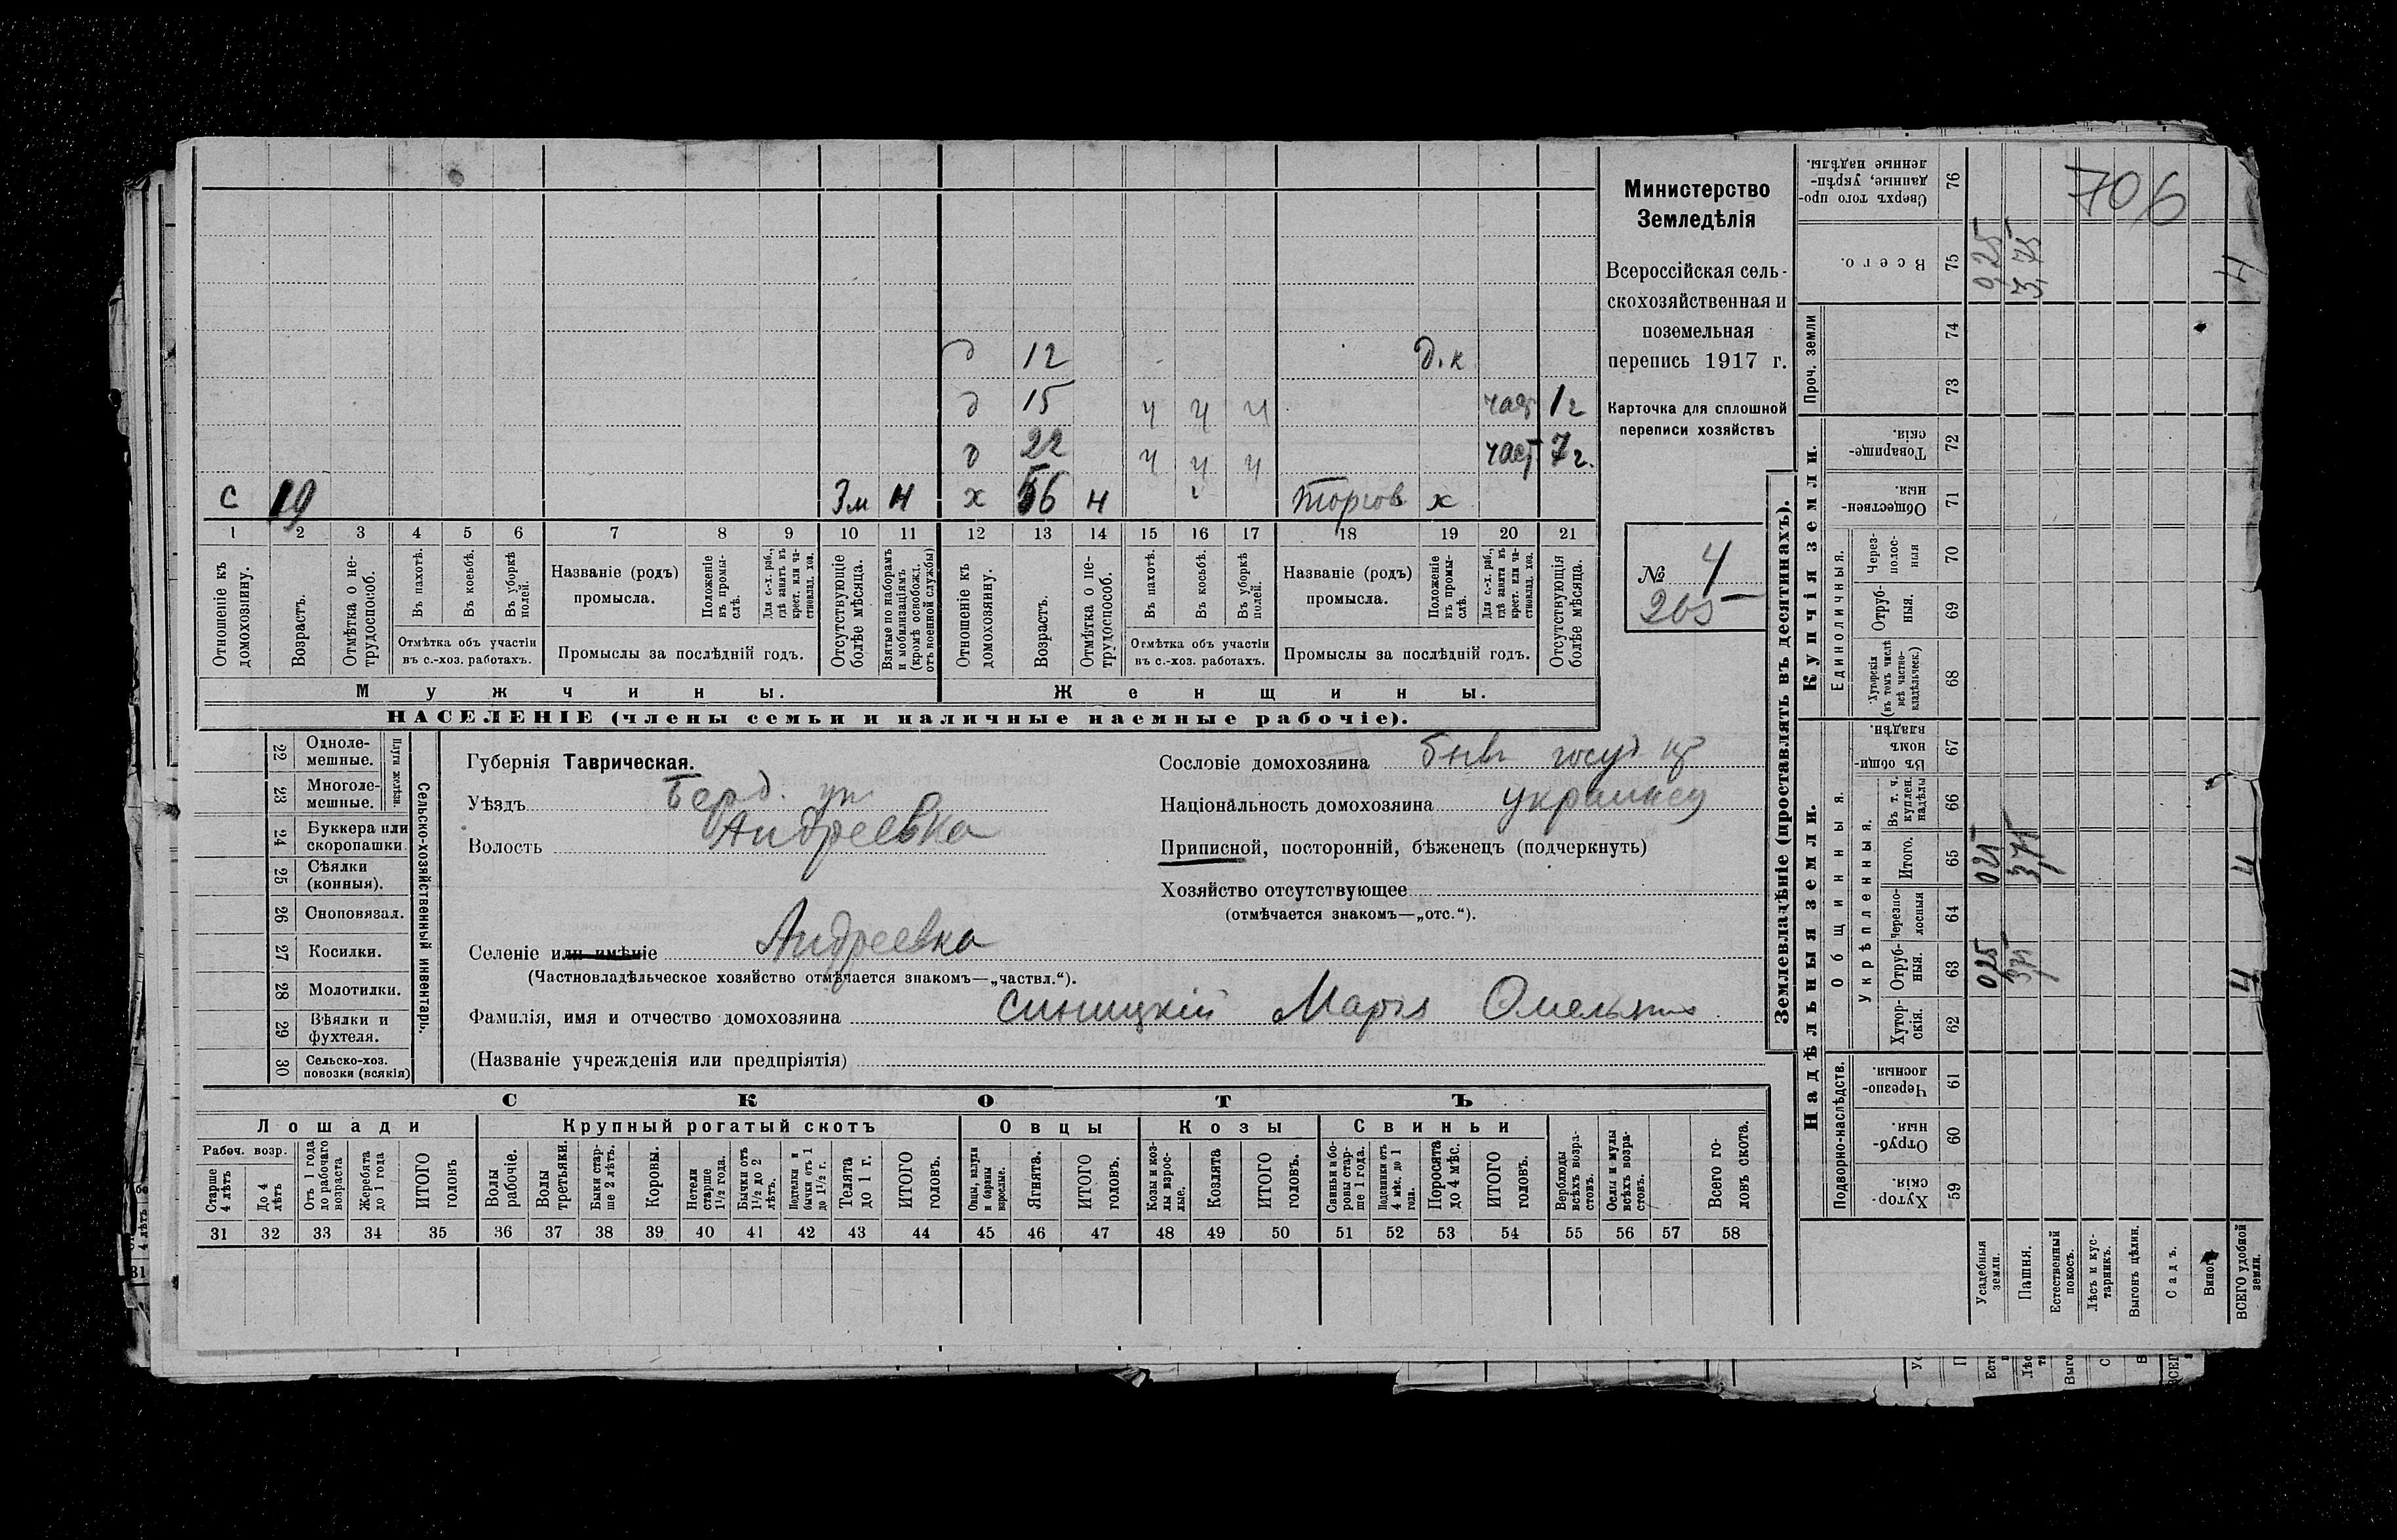 Министерство
Земледѣлія
Всероссійская сель-
скохозяйственная и
поземельная
перепись 1917 г.
Карточка для сплошной
переписи хозяйствъ
№ 4
205
706
д 12 д.к
д 15 ч ч ч част 1 г
д 22 ч ч ч част 7 г.
с 19 3м н х 56 н торгов х
1 2 3 4 5 6 7 8 9 10 11 12 13 14 15 16 17 18 19 20 21
Отношеніе къ домохозяину.
Возрастъ.
Отмѣтка о не-трудоспособ.
Въ пахотѣ.
Въ косьбѣ.
Въ уборкѣ полей.
Отмѣтка объ участіи въ с.-хоз. работахъ.
Названіе (родъ) промысла.
Положеніе въ промы-слѣ.
Для с.-х. раб., гдѣ занятъ въ крест. или ча-стновлад. хоз.
Промыслы за послѣдній годъ.
Отсутствующіе болѣе мѣсяца.
Взятые по наборамъ и мобилизаціямъ (кромѣ освобожд. отъ военной службы)
Отношеніе къ домохозяину.
Возрастъ.
Отмѣтка о не-трудоспособ.
Въ пахотѣ.
Въ косьбѣ.
Въ уборкѣ полей.
Отмѣтка объ участіи въ с.-хоз. работахъ.
Названіе (родъ) промысла.
Положеніе въ промы-слѣ.
Для с.-х. раб., гдѣ занята въ крест. или ча-стновлад. хоз.
Промыслы за послѣдній годъ.
Отсутствующія болѣе мѣсяца.
Мужчины.
Женщины.
НАСЕЛЕНІЕ (члены семьи и наличные наемные рабочіе).
22 Одноле-мешные.
23 Многоле-мешные.
Плуги желѣзн.
24 Буккера или скоропашки.
25 Сѣялки (конныя).
26 Сноповязал.
27 Косилки.
28 Молотилки.
29 Вѣялки и фухтеля.
30 Сельско-хоз. повозки (всякія)
Сельско-хозяйственный инвентарь.
Губернія Таврическая.
Уѣздъ Берд. уѣ
Волость Андреевка
Селеніе или имѣніе Андреевка
(Частновладѣльческое хозяйство отмѣчается знакомъ—„частвл.“).
Фамилія, имя и отчество домохозяина Синицкій Марія Омельян
(Названіе учрежденія или предпріятія)
Сословіе домохозяина бывг госуд кр
Національность домохозяина украинец
Приписной, посторонній, бѣженецъ (подчеркнуть)
Хозяйство отсутствующее
(отмѣчается знакомъ—„отс.“).
СКОТЪ
Лошади
Крупный рогатый скотъ
Овцы
Козы
Свиньи
Рабоч. возр.
Старше 4 лѣтъ
До 4 лѣтъ
Отъ 1 года до рабочаго возраста
Жеребята до 1 года
ИТОГО головъ
Волы рабочіе.
Волы третьяки.
Быки стар-ше 2 лѣтъ.
Коровы.
Нетели старше 1½ года.
Бычки отъ 1½ до 2 лѣтъ.
Подтелки и бычки отъ 1 до 1½ г.
Телята до 1 г.
ИТОГО головъ.
Овцы, валухи и бараны взрослые.
Ягнята.
ИТОГО головъ.
Козы и коз-лы взрос-лые.
Козлята
ИТОГО головъ.
Свиньи и бо-ровы стар-ше 1 года.
Подсвинки отъ 4 мѣс. до 1 года.
Поросята до 4 мѣс.
ИТОГО головъ.
Верблюды всѣхъ возра-стовъ.
Ослы и мулы всѣхъ возра-стовъ.
Всего го-ловъ скота.
31 32 33 34 35 36 37 38 39 40 41 42 43 44 45 46 47 48 49 50 51 52 53 54 55 56 57 58
Землевладѣніе (проставлять въ десятинахъ).
Надѣльныя земли.
Купчія земли.
Проч. земли
Подворно-наслѣдств.
Общинныя.
Укрѣпленныя.
Единоличныя.
Хутор-скія. 59
Отруб-ныя. 60
Черезпо-лосныя. 61
Хутор-скія. 62
Отруб-ныя. 63 025 375 4
Черезпо-лосныя 64
Итого. 65 025 375 4
Въ т. ч. куплен. надѣлы 66
Въ общи-номъ владѣн. 67
Хуторскія (въ томъ числѣ всѣ частно-владѣльческ.) 68
Отруб-ныя. 69
Через-полос-ныя 70
Обществен-ныя. 71
Товарище-скія. 72
73
74
Всего. 75 025 3,75 4
Сверхъ того про-данные, укрѣп-ленные надѣлы. 76
Усадебныя земли.
Пашня.
Естественный покосъ.
Лѣсъ и кус-тарникъ.
Выгонъ цѣлин.
Садъ.
Виног
ВСЕГО удобной земли.